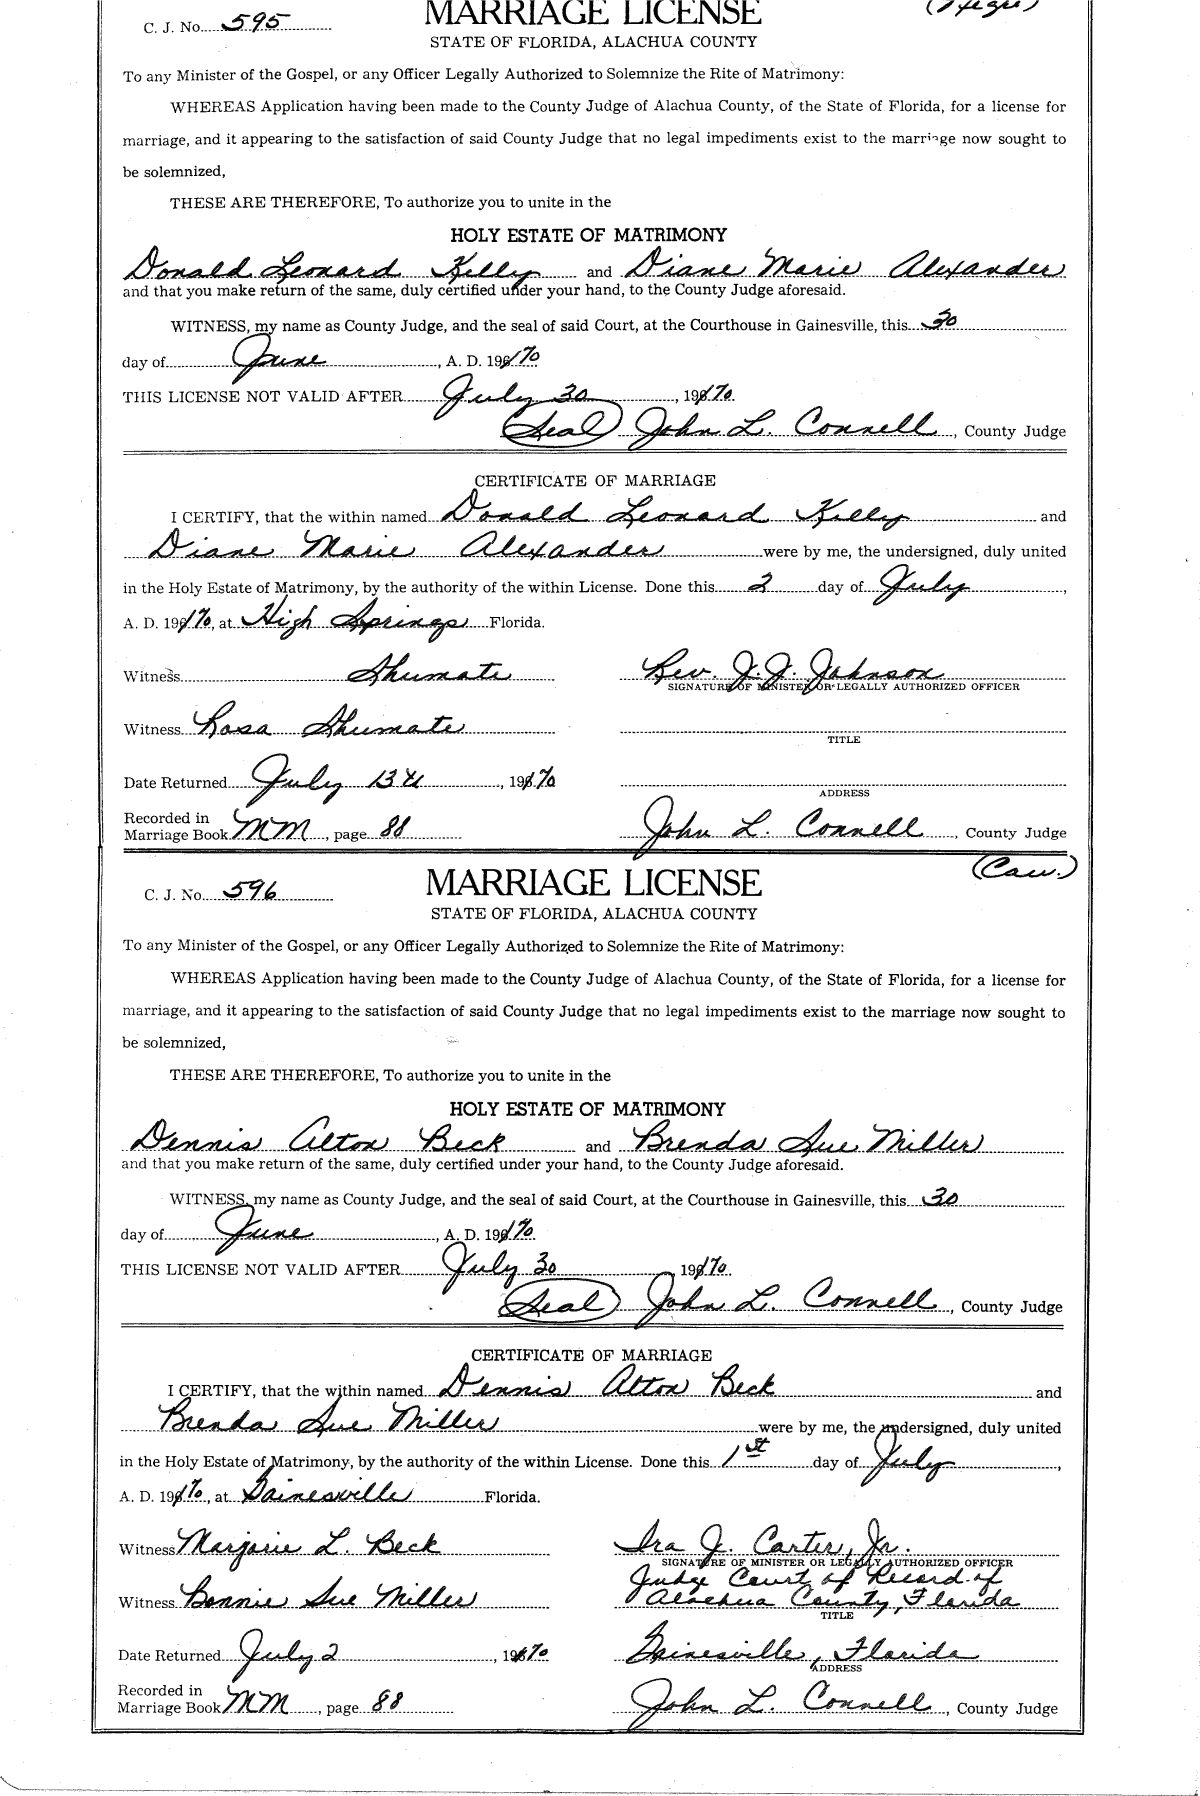 C. J. No. 595
MARRIAGE LICENSE
(Negro)
STATE OF FLORIDA, ALACHUA COUNTY
To any Minister of the Gospel, or any Officer Legally Authorized to Solemnize the Rite of Matrimony:
WHEREAS Application having been made to the County Judge of Alachua County, of the State of Florida, for a license for
marriage, and it appearing to the satisfaction of said County Judge that no legal impediments exist to the marriage now sought to
be solemnized,
THESE ARE THEREFORE, To authorize you to unite in the
HOLY ESTATE OF MATRIMONY
Donald Leonard Kelly and Diane Marie Alexander
and that you make return of the same, duly certified under your hand, to the County Judge aforesaid.
WITNESS, my name as County Judge, and the seal of said Court, at the Courthouse in Gainesville, this 30
day of June, A. D. 1970
THIS LICENSE NOT VALID AFTER July 30, 1970
(Seal) John L. Connell, County Judge
CERTIFICATE OF MARRIAGE
I CERTIFY, that the within named Donald Leonard Kelly and
Diane Marie Alexander were by me, the undersigned, duly united
in the Holy Estate of Matrimony, by the authority of the within License. Done this 2 day of July,
A. D. 1970, at High Springs Florida.
Witness Shumate Rev. J. J. Johnson
SIGNATURE OF MINISTER OR LEGALLY AUTHORIZED OFFICER
Witness Rosa Shumate
TITLE
Date Returned July 13th, 1970
ADDRESS
Recorded in
Marriage Book MM, page 88 John L. Connell, County Judge
(Cau.)
C. J. No. 596
MARRIAGE LICENSE
STATE OF FLORIDA, ALACHUA COUNTY
To any Minister of the Gospel, or any Officer Legally Authorized to Solemnize the Rite of Matrimony:
WHEREAS Application having been made to the County Judge of Alachua County, of the State of Florida, for a license for
marriage, and it appearing to the satisfaction of said County Judge that no legal impediments exist to the marriage now sought to
be solemnized,
THESE ARE THEREFORE, To authorize you to unite in the
HOLY ESTATE OF MATRIMONY
Dennis Alton Beck and Brenda Sue Miller
and that you make return of the same, duly certified under your hand, to the County Judge aforesaid.
WITNESS, my name as County Judge, and the seal of said Court, at the Courthouse in Gainesville, this 30
day of June, A. D. 1970
THIS LICENSE NOT VALID AFTER July 30 1970
(Seal) John L. Connell, County Judge
CERTIFICATE OF MARRIAGE
I CERTIFY, that the within named Dennis Alton Beck and
Brenda Sue Miller were by me, the undersigned, duly united
in the Holy Estate of Matrimony, by the authority of the within License. Done this 1st day of July,
A. D. 1970, at Gainesville Florida.
Witness Marjorie L. Beck Ira J. Carter, Jr.
SIGNATURE OF MINISTER OR LEGALLY AUTHORIZED OFFICER
Judge Court of Record of
Witness Bonnie Sue Miller Alachua County, Florida
TITLE
Date Returned July 2, 1970 Gainesville, Florida
ADDRESS
Recorded in
Marriage Book MM, page 88 John L. Connell, County Judge